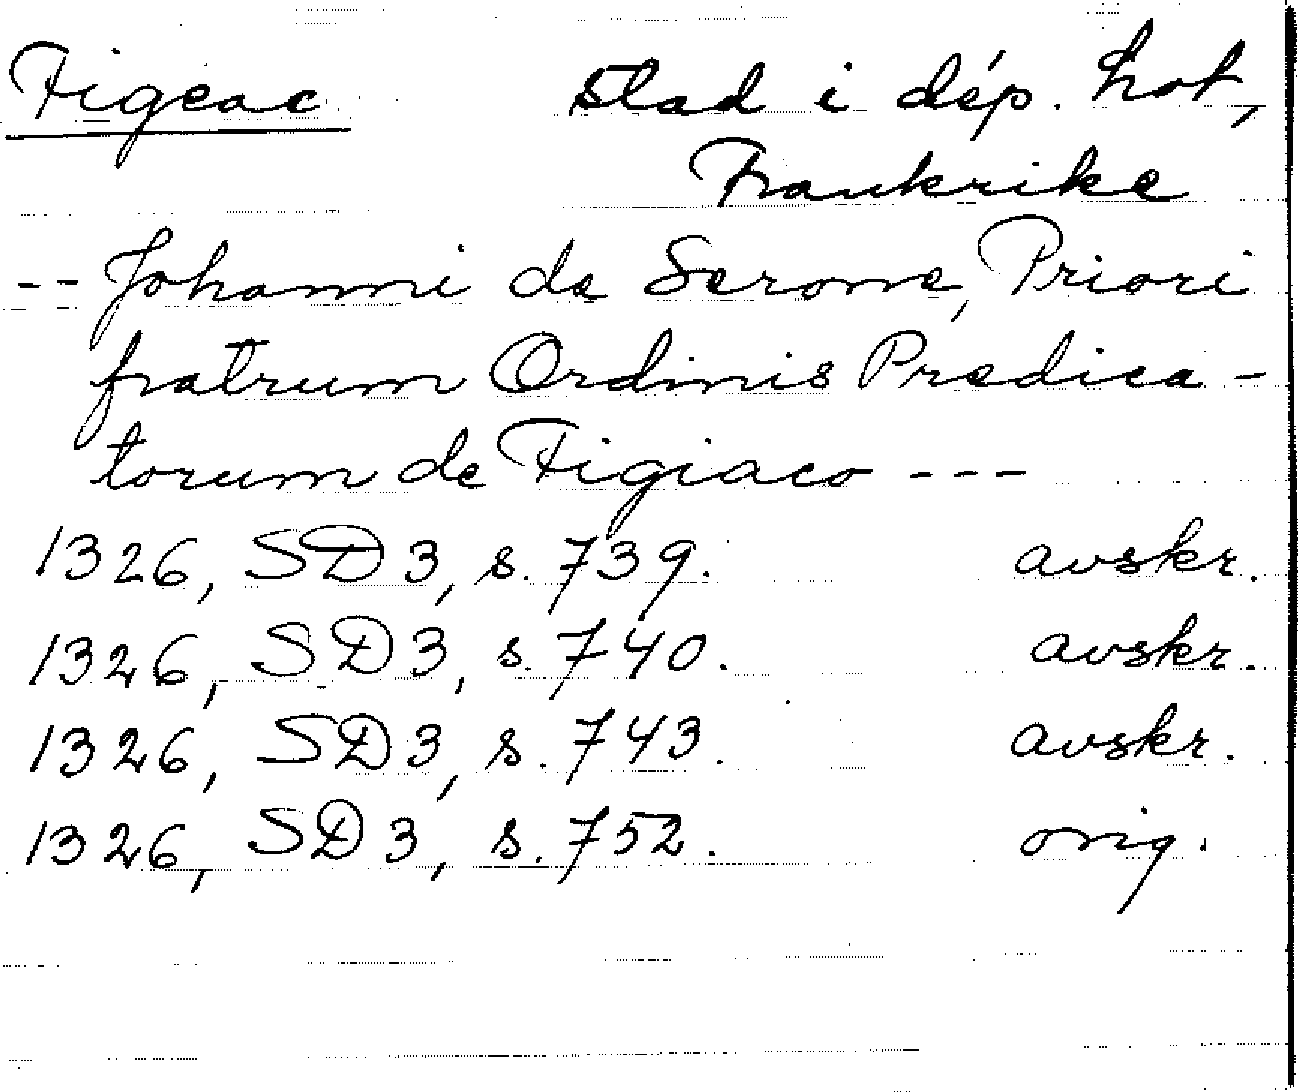 Figeac stad i dép. Lot,
Frankrike
-- Johanni de Serone, Priori
fratrum Ordinis Predica-
torum de Figiaco ---
1326, SD 3, s. 739. avskr.
1326, SD 3, s. 740. avskr.
1326, SD 3, s. 743. avskr.
1326, SD 3, s. 752. orig.